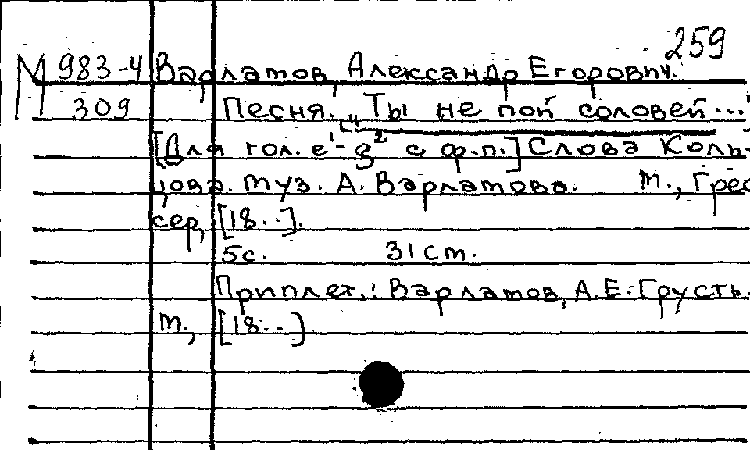 259
М 983-4 Варламов, Александр Егорович.
309 Песня. „Ты не пой соловей..."
[Для гол. e¹-g² с ф.п.] Слова Коль-
цова. Муз. А. Варламова. М., Грес-
сер, [18..].
5с. 31 см.
Приплет.: Варламов, А.Е. Грусть.
М., [18..]